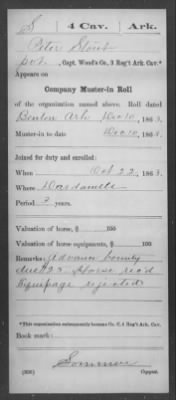 S | 4 Cav. | Ark.
Peter Stout
pvt, Capt. Wood's Co., 3 Reg't Ark. Cav.*
Appears on
Company Muster-in Roll
of the organization named above. Roll dated
Benton Ark Dec 10, 1863.
Muster-in to date Dec 10, 1863.
Joined for duty and enrolled:
When Oct 22, 1863.
Where Dardanelle
Period 3 years.
Valuation of horse, $ 100
Valuation of horse equipments, $ 100
Remarks: Advance bounty
due $25 Horse rec'd
Equipage rejected
*This organization subsequently became Co. C, 4 Reg't Ark. Cav.
Book mark:
(356) Copyist.